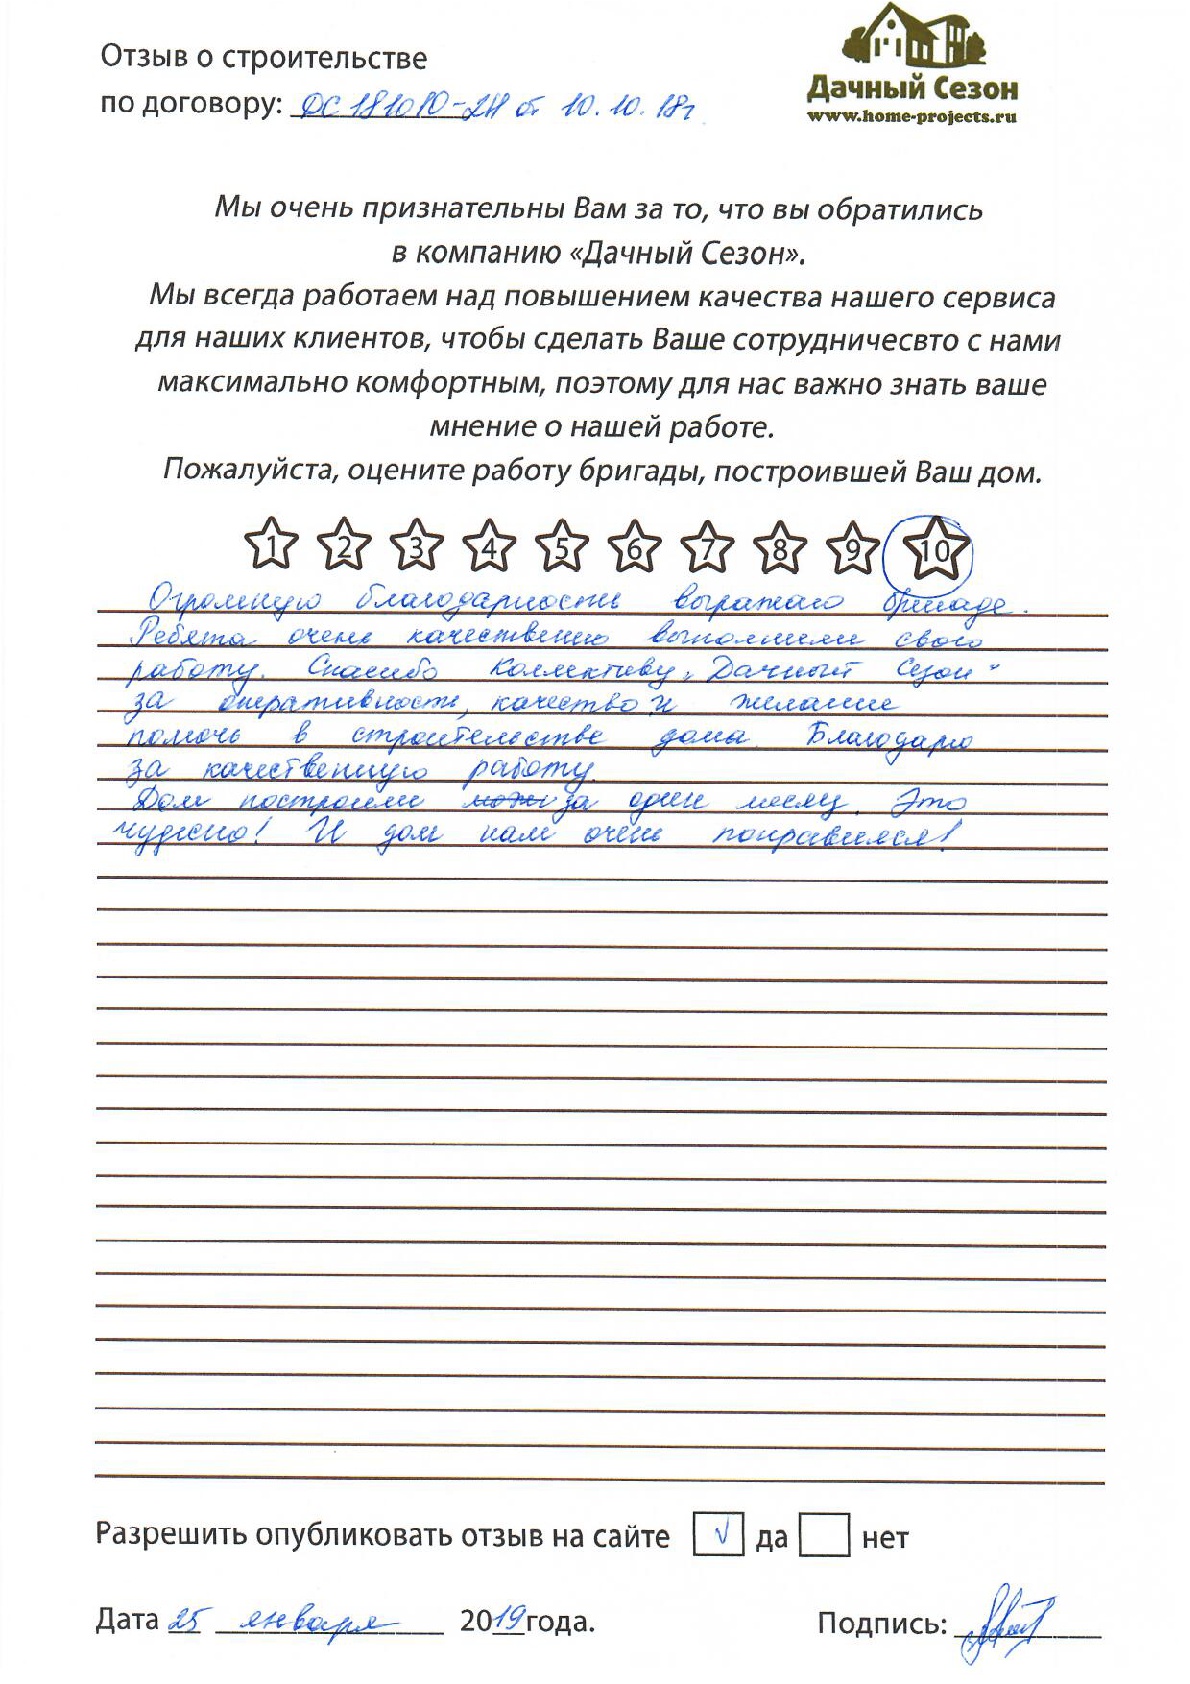 Отзыв о строительстве
по договору: ДС181010-2Н от 10.10.18г
Дачный Сезон
www.home-projects.ru
Мы очень признательны Вам за то, что вы обратились
в компанию «Дачный Сезон».
Мы всегда работаем над повышением качества нашего сервиса
для наших клиентов, чтобы сделать Ваше сотрудничесвто с нами
максимально комфортным, поэтому для нас важно знать ваше
мнение о нашей работе.
Пожалуйста, оцените работу бригады, построившей Ваш дом.
1 2 3 4 5 6 7 8 9 10
Огромную благодарность выражаю бригаде.
Ребята очень качественно выполнили свою
работу. Спасибо коллективу „Дачный Сезон“
за оперативность, качество и желание
помочь в строительстве дома. Благодарю
за качественную работу.
Дом построили за один месяц. Это
чудесно! И дом нам очень понравился!
Разрешить опубликовать отзыв на сайте √ да нет
Дата 25 января 2019 года. Подпись: